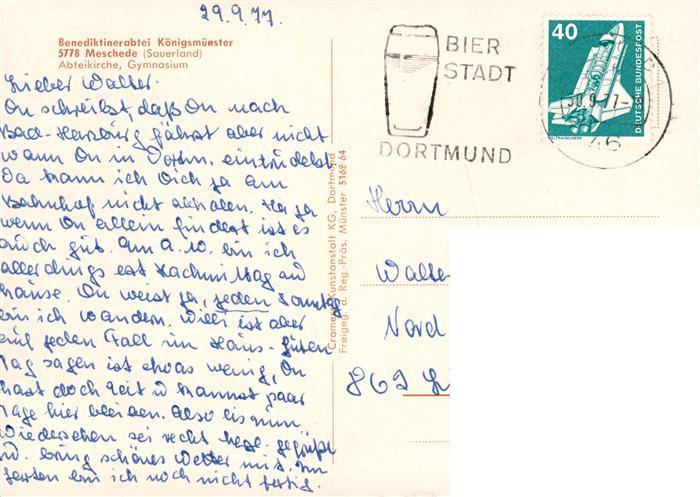 29.9.77
Benediktinerabtei Königsmünster
5778 Meschede (Sauerland)
Abteikirche, Gymnasium
Lieber Walter.
Du schreibst, daß Du nach
Bad-Harzburg fährst aber nicht
wann Du in Dortm. eintrudelst
Da kann ich Dich ja am
Bahnhof nicht abholen. Na ja
wenn Du allein findest ist es
auch gut. Am 9.10. bin ich
allerdings erst Nachmittag zu
hause. Du weist ja, jeden Sonntag
bin ich wandern. Willi ist aber
auf jeden Fall im Haus. Guten
Tag sagen ist etwas wenig, Du
hast doch Zeit u kannst paar
Tage hier bleiben. Also bis zum
Wiedersehen sei recht herzl. gegrüßt
u. bring schönes Wetter mit. Im
Garten bin ich noch nicht fertig.
Cramers Kunstanstalt KG, Dortmund
Freigeg. d. Reg.-Präs. Münster 5162 64
BIER
STADT
DORTMUND
30.9.77
46
40
DEUTSCHE BUNDESPOST
WELTRAUMLABOR
Herrn
Walte
Nord
867